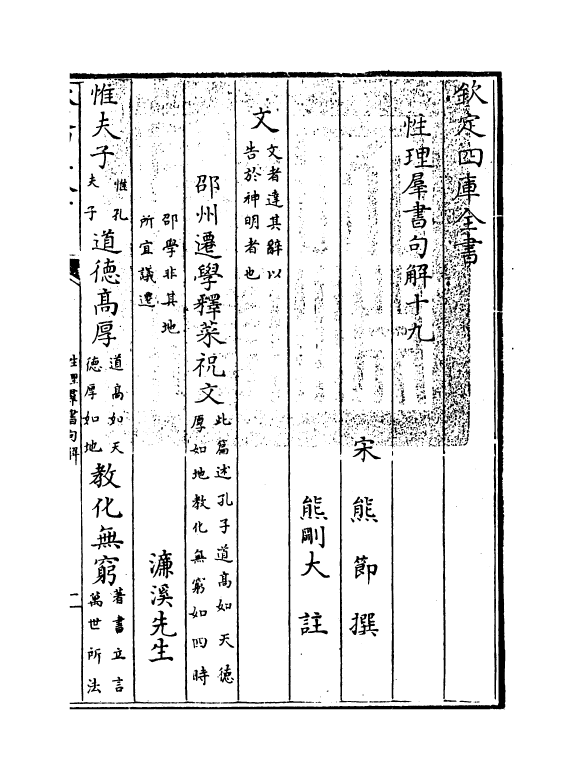 欽定四庫全書
性理羣書句解十九
宋熊節撰
熊剛大註
文
文者達其辭以
告於神明者也
邵州遷學釋菜祝文
此篇述孔子道高如天德
厚如地教化無窮如四時
濂溪先生
邵學非其地
所宜議遷
惟夫子
惟孔
夫子
道德髙厚
道高如天
德厚如地
教化無窮
著書立言
萬世所法
性理羣書句解